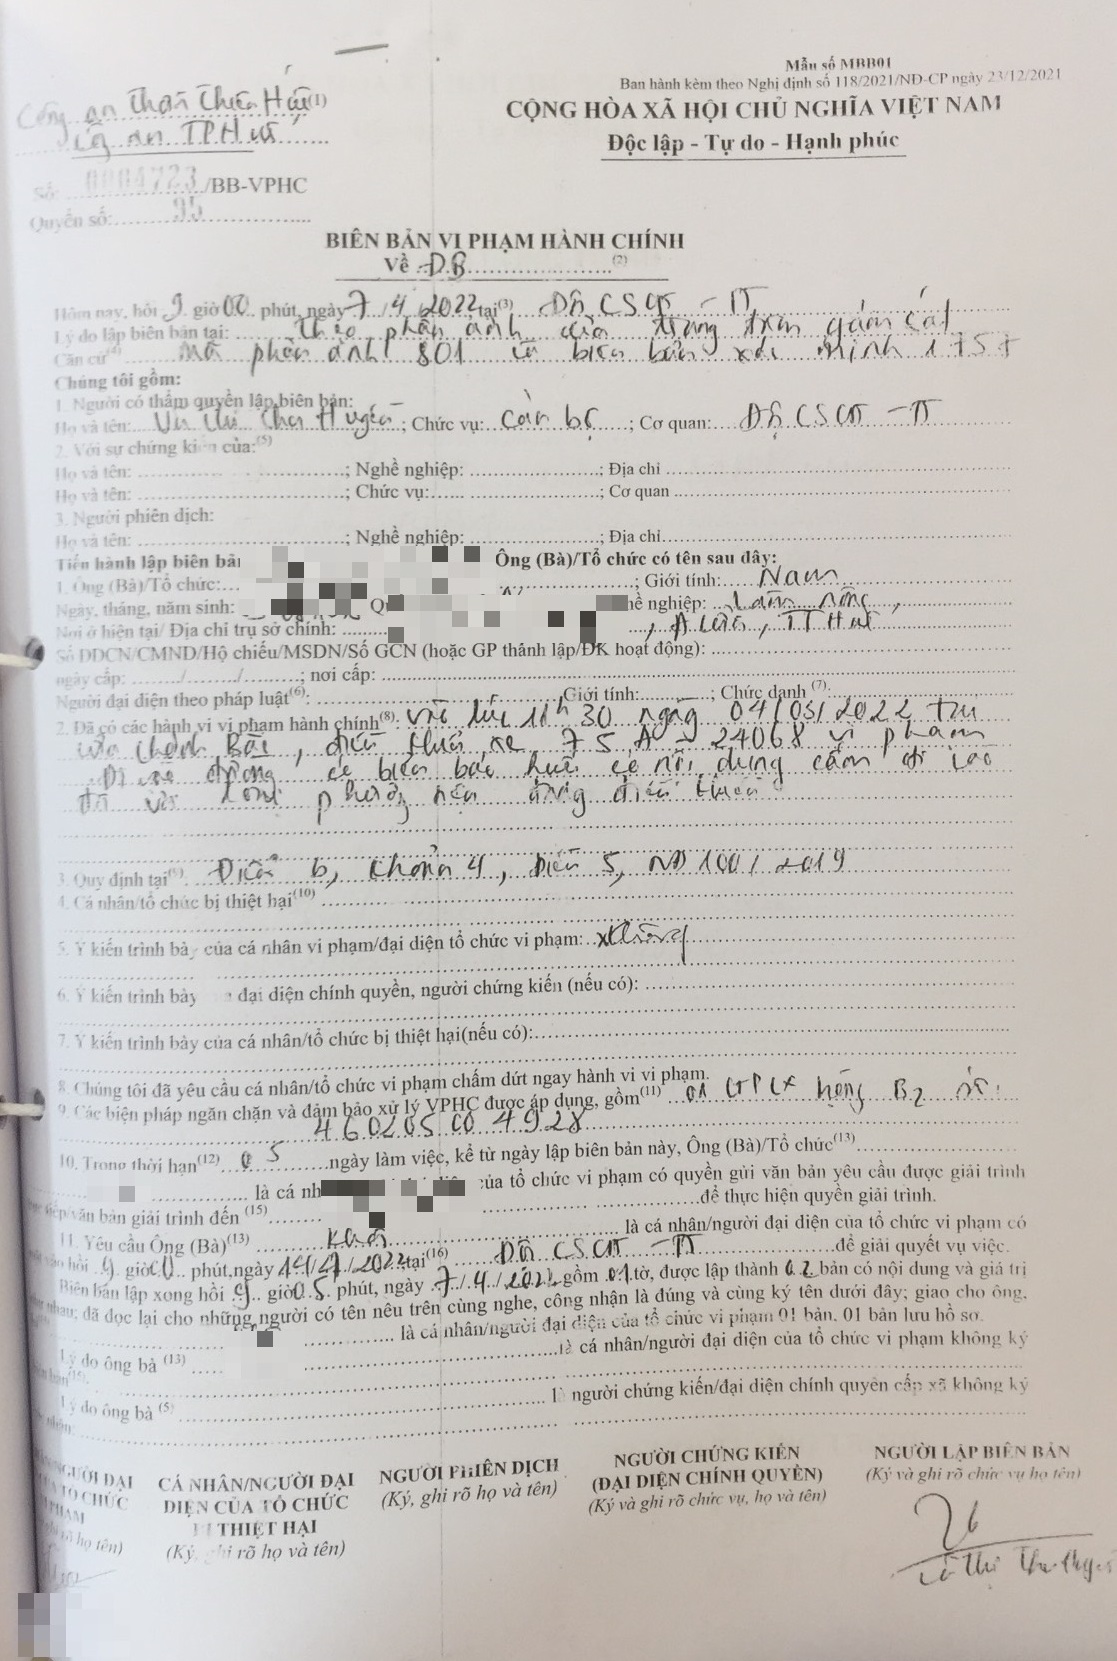 Mẫu số MBB01
Ban hành kèm theo Nghị định số 118/2021/NĐ-CP ngày 23/12/2021
Công an (1)
CỘNG HÒA XÃ HỘI CHỦ NGHĨA VIỆT NAM
Công an TP Huế
Độc lập - Tự do - Hạnh phúc
Số: 0004723 /BB-VPHC
Quyển số: 95
BIÊN BẢN VI PHẠM HÀNH CHÍNH
Về ĐB (2)
Hôm nay, hồi 9 giờ 00 phút, ngày 7/4/2022, tại (3) Đội CSGT - TT
Lý do lập biên bản tại: theo phản ánh của trung tâm giám sát
Căn cứ (4) mã phản ánh 801 và biên bản xác minh 1757
Chúng tôi gồm:
1. Người có thẩm quyền lập biên bản:
Họ và tên: ; Chức vụ: Cán bộ ; Cơ quan: Đội CSGT - TT
2. Với sự chứng kiến của: (5)
Họ và tên: ; Nghề nghiệp: ; Địa chỉ
Họ và tên: ; Chức vụ: ; Cơ quan
3. Người phiên dịch:
Họ và tên: ; Nghề nghiệp: ; Địa chỉ
Tiến hành lập biên bản Ông (Bà)/Tổ chức có tên sau đây:
1. Ông (Bà)/Tổ chức: ; Giới tính: Nam
Ngày, tháng, năm sinh: nghiệp: Làm nông,
Nơi ở hiện tại/ Địa chỉ trụ sở chính: , A Lưới, TT Huế
Số ĐDCN/CMND/Hộ chiếu/MSDN/Số GCN (hoặc GP thành lập/ĐK hoạt động):
ngày cấp: / / ; nơi cấp:
Người đại diện theo pháp luật (6): Giới tính: ; Chức danh (7):
2. Đã có các hành vi vi phạm hành chính (8): vào lúc 11h 30 ngày 04/03/2022 tại
điều khiển xe 75A - 24068 vi phạm
Đi vào đường có biển báo hiệu có nội dung cấm đi vào
đối với loại phương tiện đang điều khiển
3. Quy định tại (9) Điểm b, khoản 4, Điều 5, NĐ 100/2019
4. Cá nhân/tổ chức bị thiệt hại (10)
5. Ý kiến trình bày của cá nhân vi phạm/đại diện tổ chức vi phạm: không
6. Ý kiến trình bày đại diện chính quyền, người chứng kiến (nếu có):
7. Ý kiến trình bày của cá nhân/tổ chức bị thiệt hại(nếu có):
8. Chúng tôi đã yêu cầu cá nhân/tổ chức vi phạm chấm dứt ngay hành vi vi phạm.
9. Các biện pháp ngăn chặn và đảm bảo xử lý VPHC được áp dụng, gồm (11) 01 GPLX hạng B2 số:
460205004928
10. Trong thời hạn (12) 05 ngày làm việc, kể từ ngày lập biên bản này, Ông (Bà)/Tổ chức (13)
là cá của tổ chức vi phạm có quyền gửi văn bản yêu cầu được giải trình
tiếp/văn bản giải trình đến (15) để thực hiện quyền giải trình.
11. Yêu cầu Ông (Bà) (13) là cá nhân/người đại diện của tổ chức vi phạm có
mặt vào hồi 9 giờ 00 phút, ngày 14/4/2022 tại (16) Đội CSGT - TT để giải quyết vụ việc.
Biên bản lập xong hồi 9 giờ 05 phút, ngày 7/4/2022, gồm 01 tờ, được lập thành 02 bản có nội dung và giá trị
nhau; đã đọc lại cho những người có tên nêu trên cùng nghe, công nhận là đúng và cùng ký tên dưới đây; giao cho ông,
là cá nhân/người đại diện của tổ chức vi phạm 01 bản, 01 bản lưu hồ sơ.
Lý do ông bà (13) là cá nhân/người đại diện của tổ chức vi phạm không ký
bản (15):
Lý do ông bà (5) là người chứng kiến/đại diện chính quyền cấp xã không ký
NGƯỜI ĐẠI
TỔ CHỨC
PHẠM
rõ họ tên)
CÁ NHÂN/NGƯỜI ĐẠI
DIỆN CỦA TỔ CHỨC
BỊ THIỆT HẠI
(Ký, ghi rõ họ và tên)
NGƯỜI PHIÊN DỊCH
(Ký, ghi rõ họ và tên)
NGƯỜI CHỨNG KIẾN
(ĐẠI DIỆN CHÍNH QUYỀN)
(Ký và ghi rõ chức vụ, họ và tên)
NGƯỜI LẬP BIÊN BẢN
(Ký và ghi rõ chức vụ họ tên)